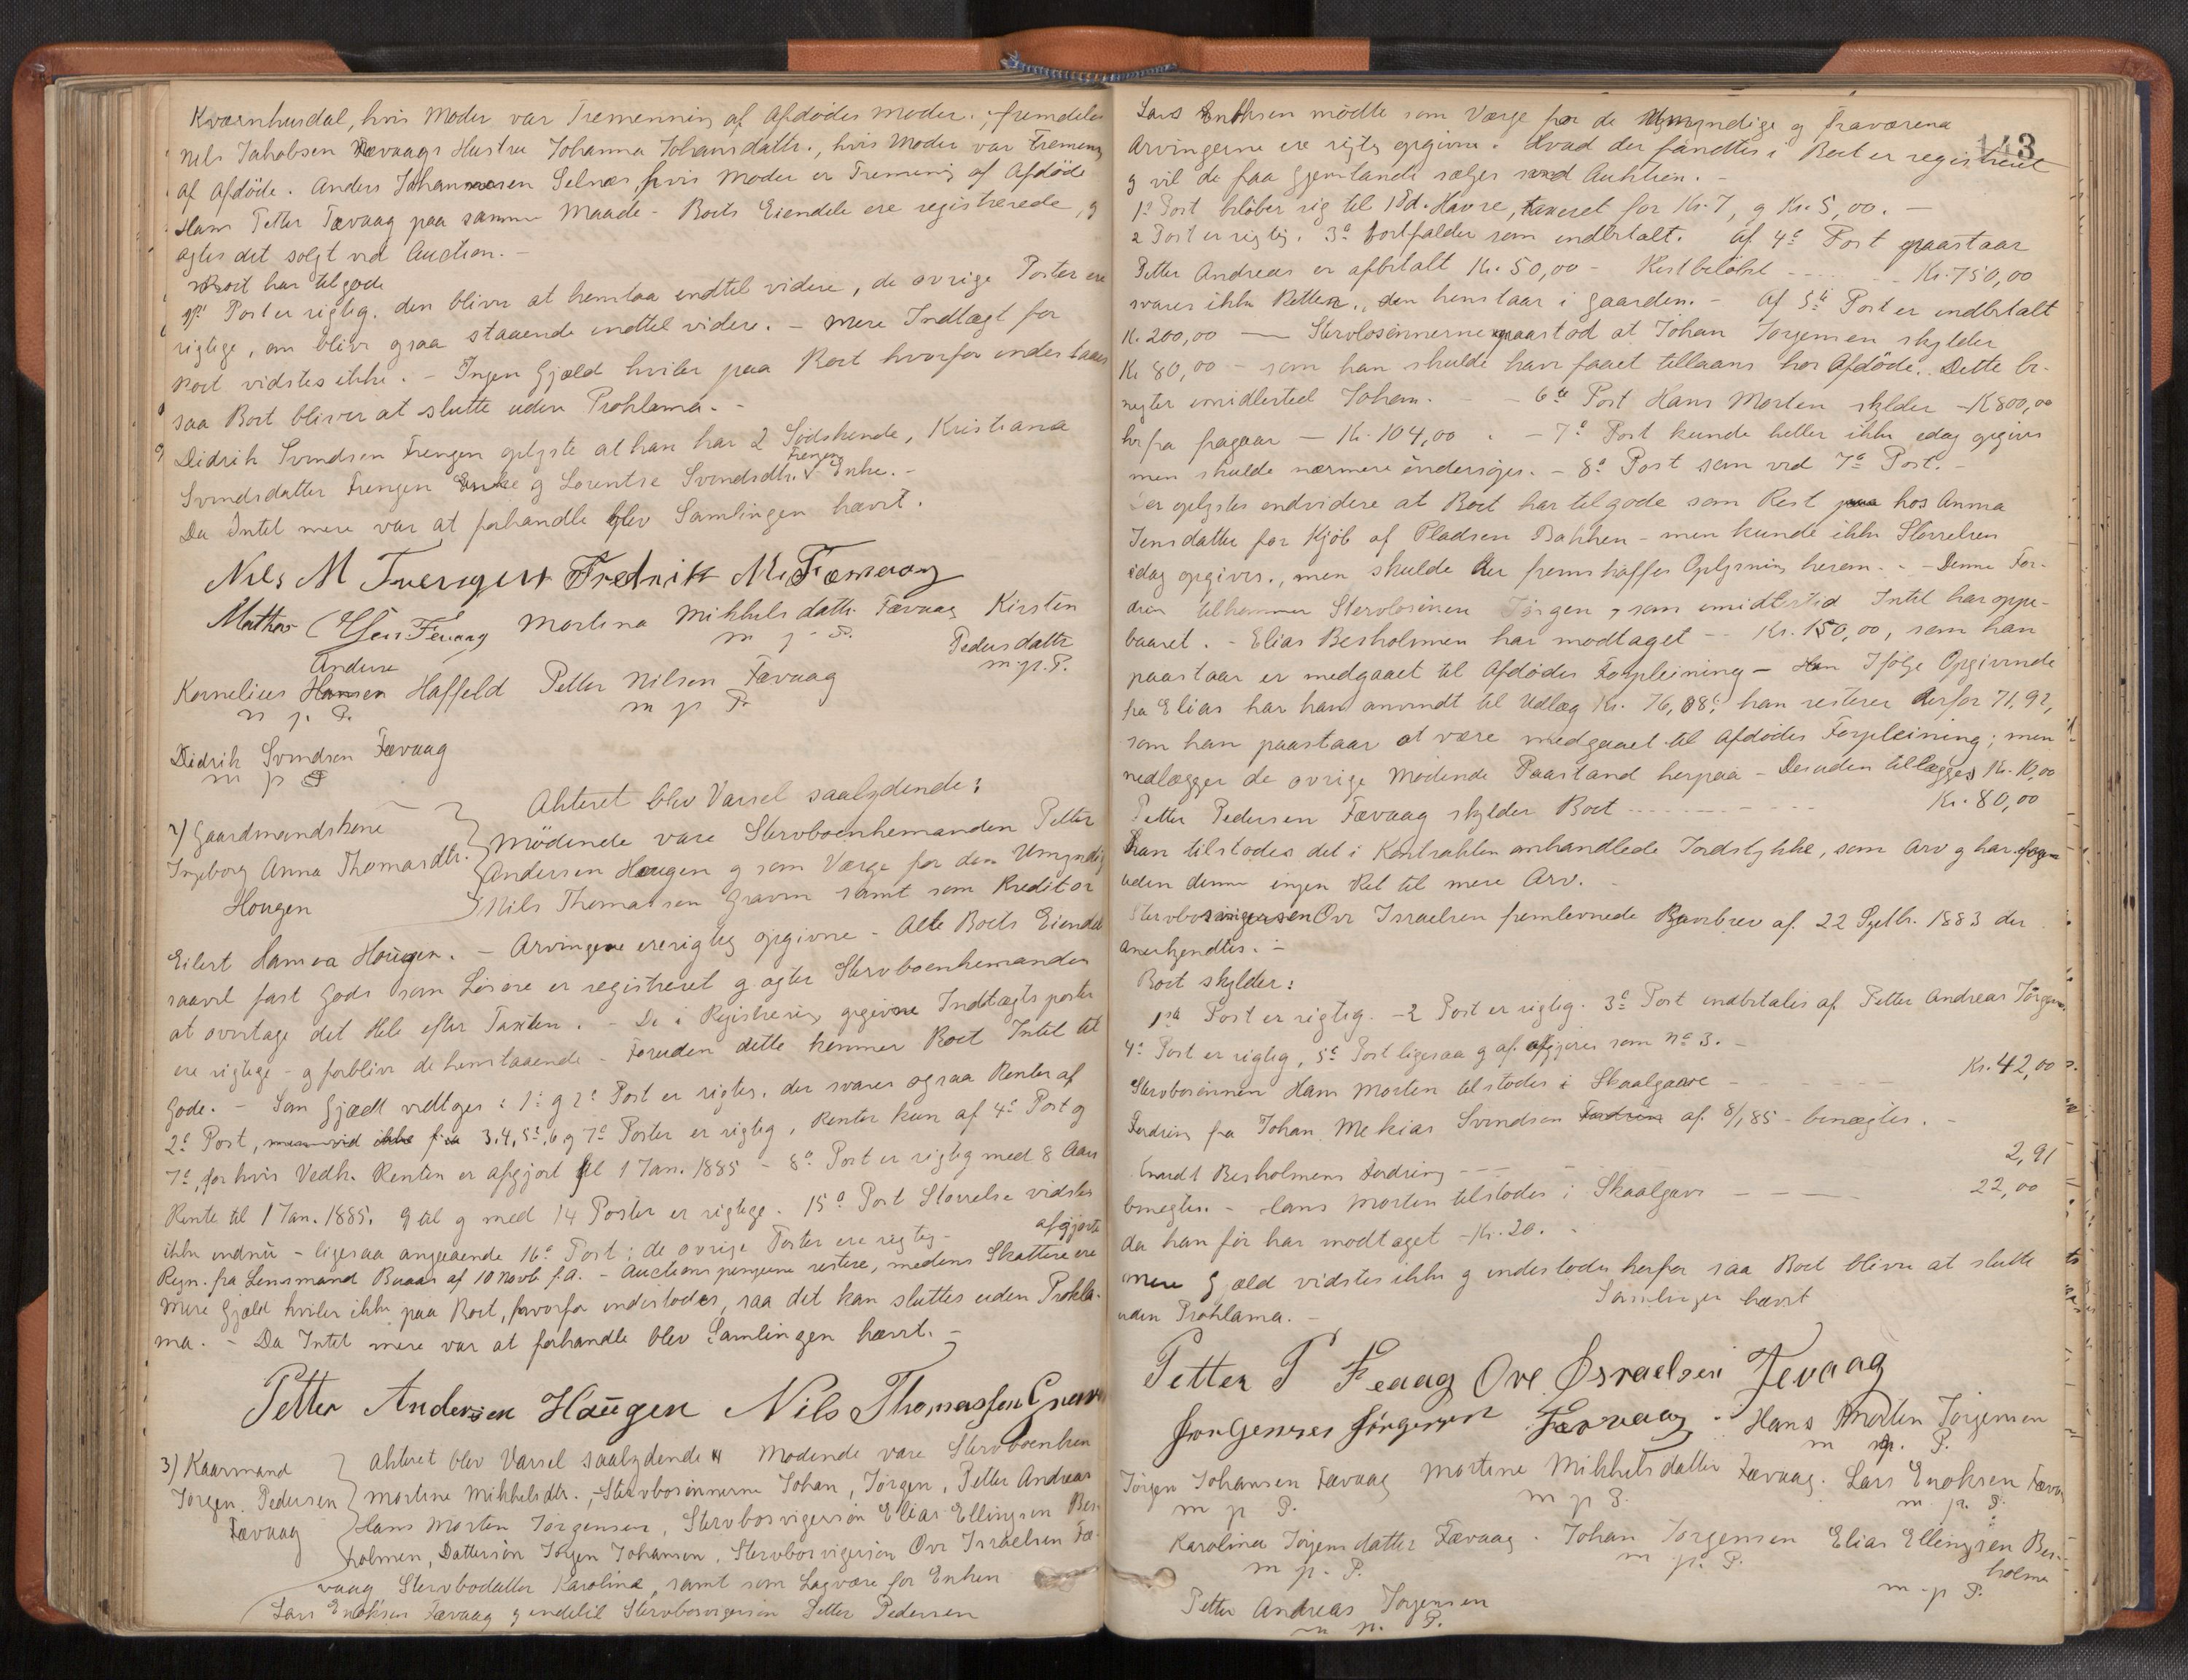 Kværnhusdal, hvis Moder var Tremenning af Afdødes Moder.; fremdeles
Nels Jakobsen Fævaags Hustru Johanna Johansdattr., hvis Moder var Fremeng
af Afdöde. Anders Johannesen Selnæs, hvis Moder er Fremeng af Afdöde
Hans Petter Fævaag paa samme Maade - Boets Eiendele ere registrerede, g
agtes det solgt ved Auction. -
Boet har tilgode
1ste Post er rigtig. den bliver at henstaa indtil videre, de øvrige Poster ere
rigtige, om bliver ogsaa staaende indtil videre. - Mere Indtægt for
Boet vidstes ikke. - Ingen Gjæld hviler paa Boet hvorfor indestaaes
saa Boet bliver at slutte uden Proklama. -
Didrik Svendsen Frengen oplyste at han har 2 Södskende, Kristiana
Svendsdatter Frengen Enke g Lorentse Svendsdtr. Frengen Enke. -
Da Intet mere var at forhandle blev Samlingen hævet.
Nils M Fredrik M. Fæwaag
Mathias Martina Mikkelsdattr. Fævaag Kirsten
m p. P. Pedersdattr
m. p. P.
Andere
Kornelius Hansen Haffeld Petter Nilsen Fævaag
m p. P. m p P.
Didrik Svendsen Fævaag
m p P
2) Gaardmandskone
Ingeborg Anna Thomasdtr.
Hougen
Akteret blev Varsel saalydende:
Mödende vare Stervboenkemanden Petter
Andersen Hougen g som Værge for den Umyndig
Nils Thomassen Graven samt som Kreditor
Eilert Hansen Hougen. - Arvingene ere rigtig opgivne - Alle Boets Eiendel
saavel fast Gods som Lösöre er registreret g agter Stervboenkemanden
at overtage det Hele efter Taxten. - De i Registrering opgivne Indtægtsposter
ere rigtige - g forbliver de henstaaende - Foruden dette kommer Boet Intet til
Gode. - Som Gjæld vedtoges: 1ste g 2d Post er rigtig. der svares ogsaa Renter af
2d Post, men vid ikke fra 3.4, 5te, 6 g 7d Poster er rigtig, Renter kun af 4d Post g
7d, for hvis Vedk. Renten er afgjort til 1 Jan. 1885 - 8d Post er rigtig med 8 Aars
Rente til 1 Jan. 1885. 9 til g med 14 Poster er rigtige. 15d Post Störrelse vidstes
ikke endnu - ligesaa angaaende 16d Post; de øvrige Poster ere rigtig -
Regn. fra Lensmand Buaas af 10 Novb f.A. - Auctionspengene restere, medens Skatterne ere afgjorte
Mere Gjæld hviler ikke paa Boet, hvorfor indestodes, saa det kan sluttes uden Prokla-
ma. - Da Intet mere var at forhandle blev Samlingen hævet. -
Petter Andersen Haugen Nils Thomassen Graven
3) Kaarmand
Jörgen Pedersen
Fævaag
Akteret blev Varsel saalydende Modende vare Stervboenken
Martine Mikkelsdtr., Stervbosönnerne Johan, Jörgen, Petter Andreas
Hans Morten Jörgensen, Stervbosvigersön Elias Ellingsen Bes-
holmen, Dattersön Jörgen Johansen, Stervbosvigersön Ove Israelsen Fæ-
vaag Stervbodatter Karoline, samt som Lagværge for Enken
Lars Enoksen Fævaag g endelil Stervbosvigersön Petter Pedersen
143
Lars Enoksen mödte som Værge for de Umyndige g fraværena
Arvingerne ere rigtig opgivne. Hvad der fandtes i Boet er registreret
g vil de faa Gjenstande sælges ved Auktion. -
1ste Post belöber sig til 1 Td. Havre, taxeret for Kr. 7, g Kr. 5,00. -
2 Post er rigtig. 3d bortfalder som indbetalt. Af 4d Post paastaar
Petter Andreas er afbetalt Kr. 50,00 - Restbelöbet - Kr. 750,00
svares ikke Renter, den henstaar i Gaarden. - Af 5te Post er indbetalt
Kr. 200,00 — Stervbosönnerne paastod at Johan Jörgensen skylder
Kr 80,00 - som han skulde have faaet tillaans hos Afdöde. Dette be-
negter imidlertid Johan. - 6te Post Hans Morten skylder - K 800,00
herfra fragaar - Kr. 104,00. - 7d Post kunde heller ikke idag opgives
men skulde nærmere undersöges. - 8d Post som ved 7d Post. -
er oplystes endvidere at Boet har tilgode som Rest paa hos Anna
Jensdatter for Kjöb af Pladsen Bakken - men kunde ikke Störrelsen
idag opgives., men skulde der fremskaffes Oplysning herom. - Denne For-
dring tilkommer Stervbosönnen Jörgen, som imidlertid Intet har oppe-
baaret. - Elias Besholmen har modtaget - Kr. 150,00, som han
paastaar er medgaaet til Afdödes Forpleining - Han Ifölge Opgivende
fra Elias har han anvendt til Udlæg Kr. 76,08; han resterer derfor 71,92,
som han paastaar at være medgaaet til Afdödes Forpleining; men
nedlægger de øvrige Mödende Paastand herpaa - Desuden tillægges Kr. 10,00
Petter Pedersen Fævaag skylder Boet - Kr. 80,00
han tilstodes det i Kontrakten omhandlede Jordstykke, som Arv g har
uden denne ingen Ret til mere Arv. -
Stervbosvigersön Ove Israelsen fremlevnede Gavebrev af 22 Septb. 1883 der
Anerkjendtes. -
Boet skylder:
1ste Post er rigtig. - 2 Post er rigtig. 3d Post indbetales af Petter Andreas Jörgens.
4d Post er rigtig, 5d Post ligesaa g af afgjöres som No 3. -
Stervbosönnen Hans Morten tilstodes i Skaalgave - Kr. 42,00
Fordring fra Johan Mekias Svendsen Fordring af 8/1,85 - benægtes. -
Enardt Besholmens Fordring - 2,91
benegtes. - Hans Morten tilstodes i Skaalgave - 22,00
da han för har modtaget - Kr. 20. -
Mere Gjæld vidstes ikke g indestodes herfor saa Boet bliver at slutte
uden Proklama. - Samlingen hævet
Petter P Feaag Ove Israelsen Fevaag
Jörgensen Færvaag. Hans Morten Jörgensen
m p. P.
Jörgen Johansen Fævaag Martine Mikkelsdatter Fævaag. Lars Enoksen Fævaag
m p P. m p P. m p. P.
Karolina Jörgensdatter Fævaag. Johan Jörgensen Elias Ellingsen Bes-
m p. P. m p. P. holmen
m. p P.
Petter Andreas Jörgensen
m p. P.